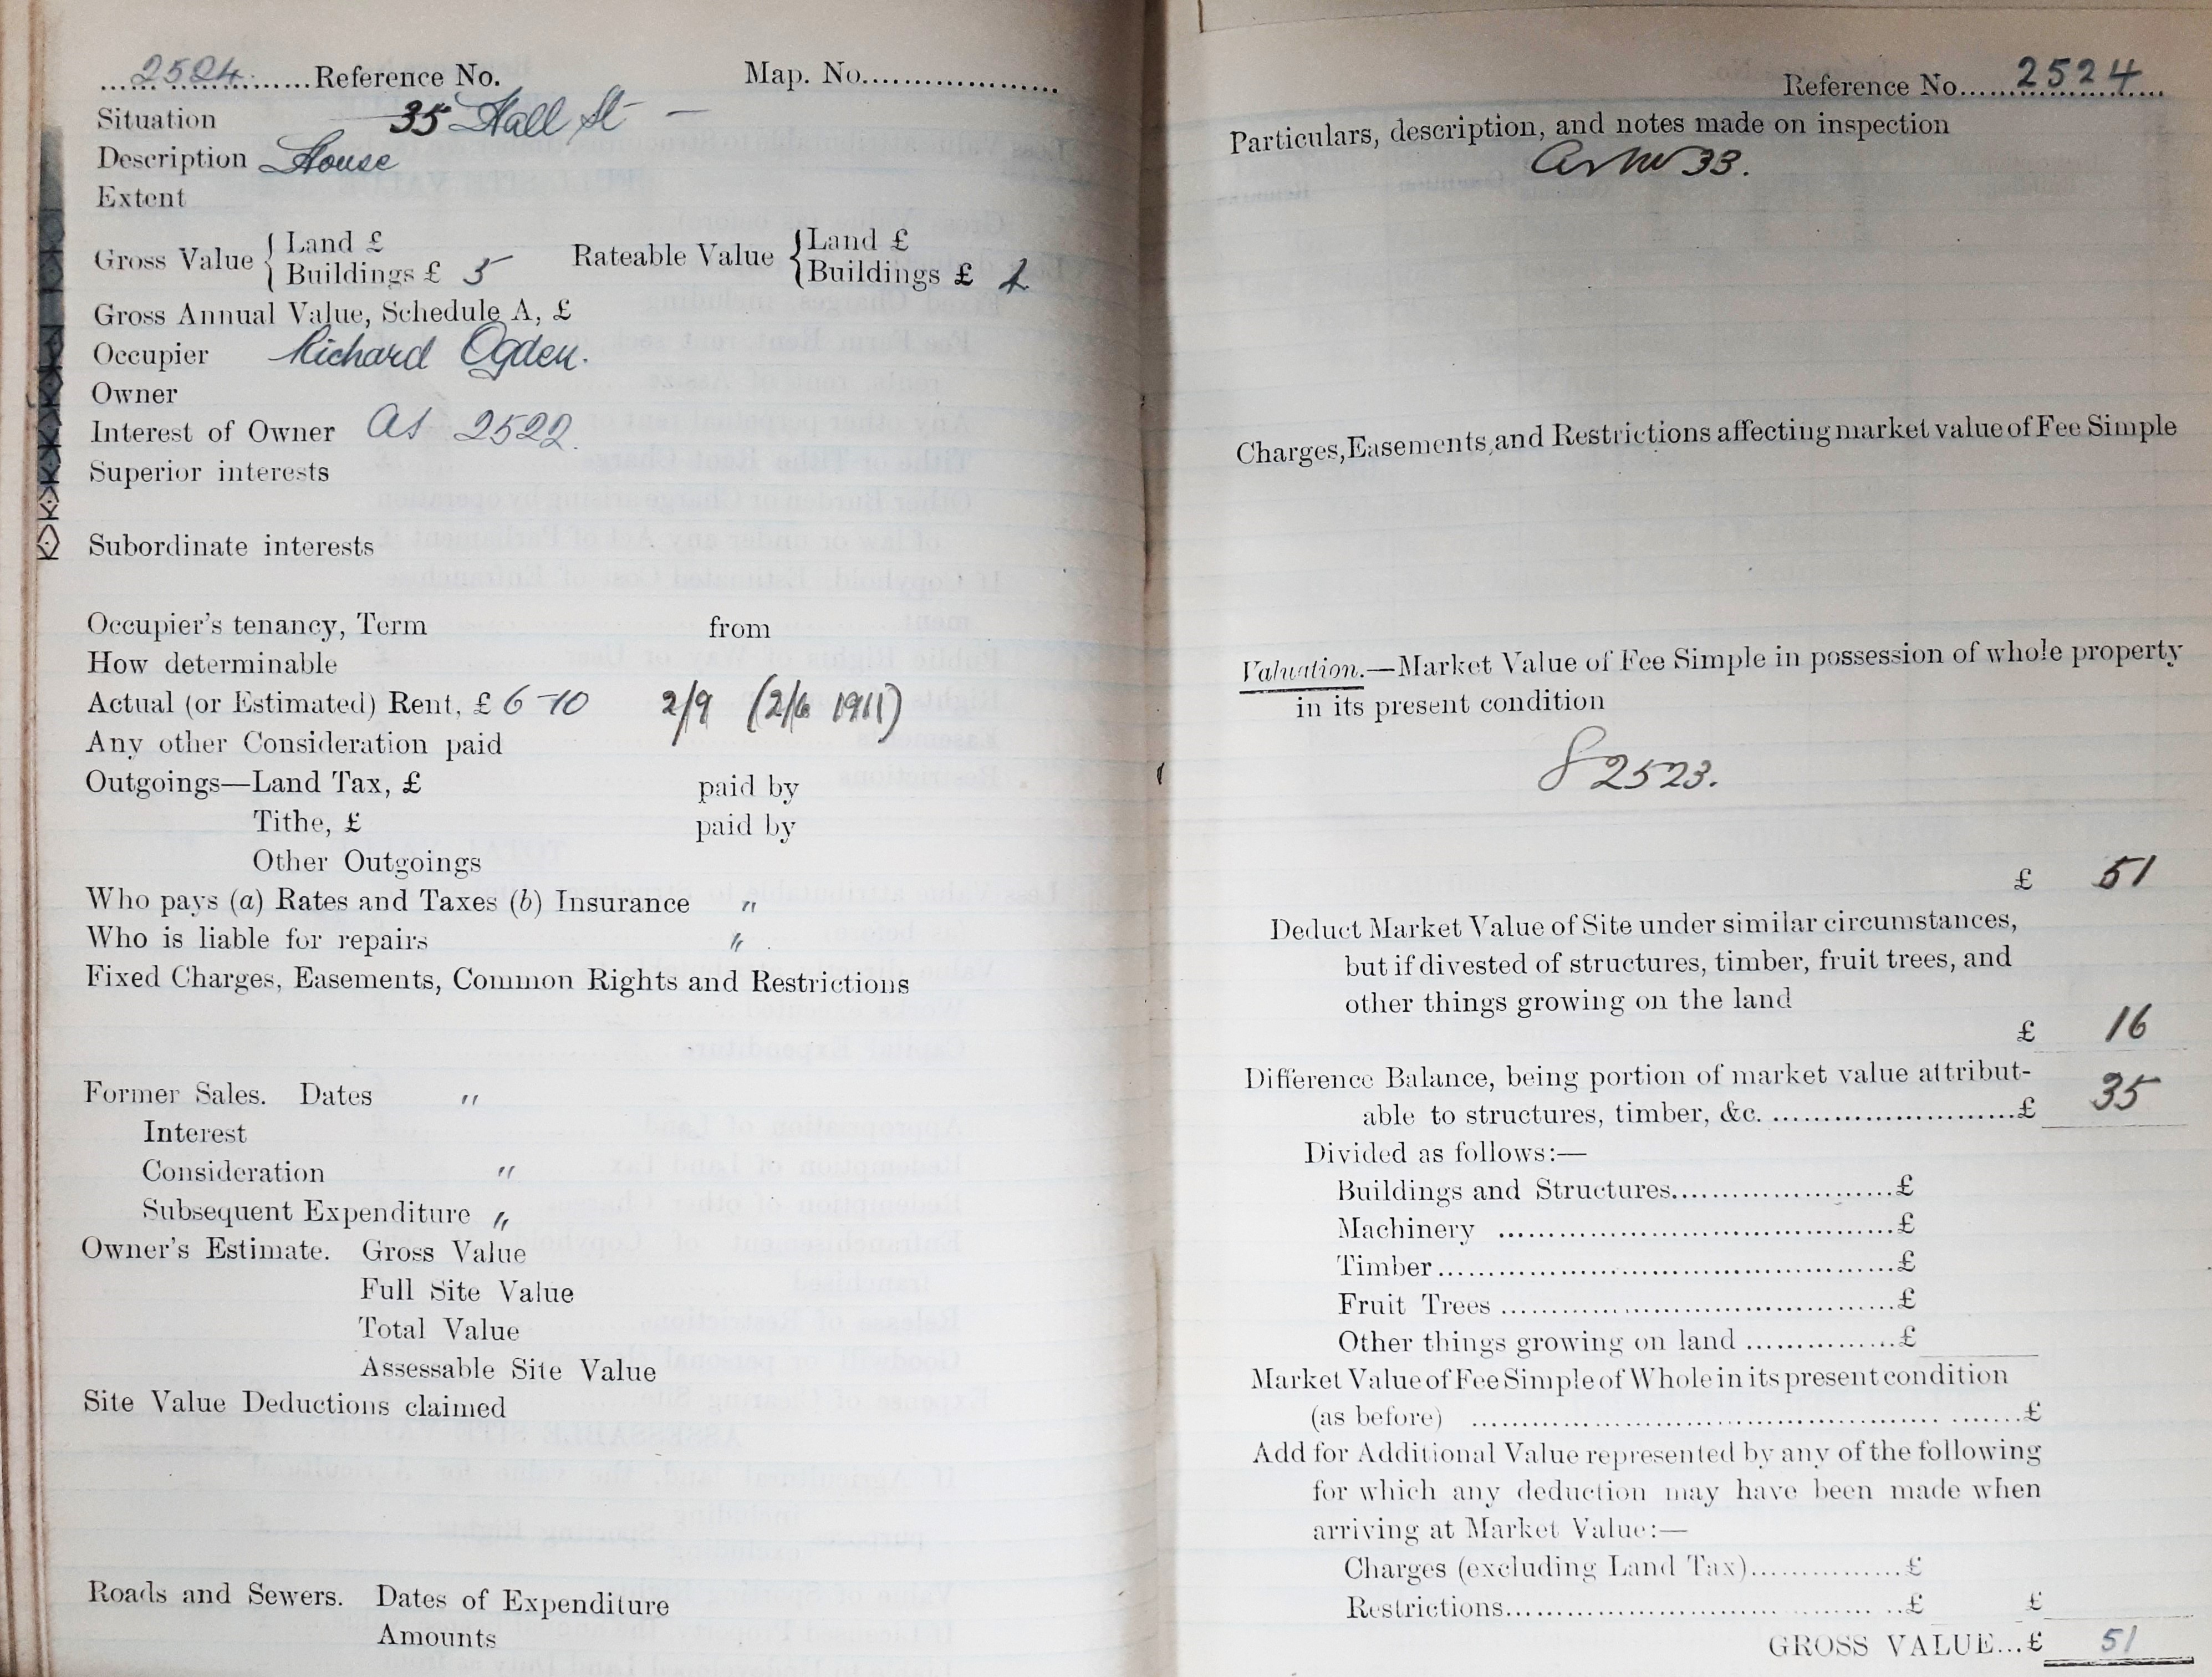 2524. Reference No. Map. No.
Situation 35 Hall St —
Description House
Extent
Gross Value { Land £ Rateable Value { Land £
Buildings £ 5 Buildings £
Gross Annual Value, Schedule A, £
Occupier Richard Ogden.
Owner
Interest of Owner As 2522.
Superior interests
Subordinate interests
Occupier's tenancy, Term from
How determinable
Actual (or Estimated) Rent, £ 6-10 2/9 (2/6 1911)
Any other Consideration paid
Outgoings—Land Tax, £ paid by
Tithe, £ paid by
Other Outgoings
Who pays (a) Rates and Taxes (b) Insurance "
Who is liable for repairs "
Fixed Charges, Easements, Common Rights and Restrictions
Former Sales. Dates "
Interest
Consideration "
Subsequent Expenditure "
Owner's Estimate. Gross Value
Full Site Value
Total Value
Assessable Site Value
Site Value Deductions claimed
Roads and Sewers. Dates of Expenditure
Amounts
Reference No. 2524
Particulars, description, and notes made on inspection
As No 33.
Charges, Easements, and Restrictions affecting market value of Fee Simple
Valuation.—Market Value of Fee Simple in possession of whole property
in its present condition
2523.
£ 51
Deduct Market Value of Site under similar circumstances,
but if divested of structures, timber, fruit trees, and
other things growing on the land
£ 16
Difference Balance, being portion of market value attribut-
able to structures, timber, &c. £ 35
Divided as follows:—
Buildings and Structures £
Machinery £
Timber £
Fruit Trees £
Other things growing on land £
Market Value of Fee Simple of Whole in its present condition
(as before) £
Add for Additional Value represented by any of the following
for which any deduction may have been made when
arriving at Market Value:—
Charges (excluding Land Tax) £
Restrictions £ £
GROSS VALUE...£ 51